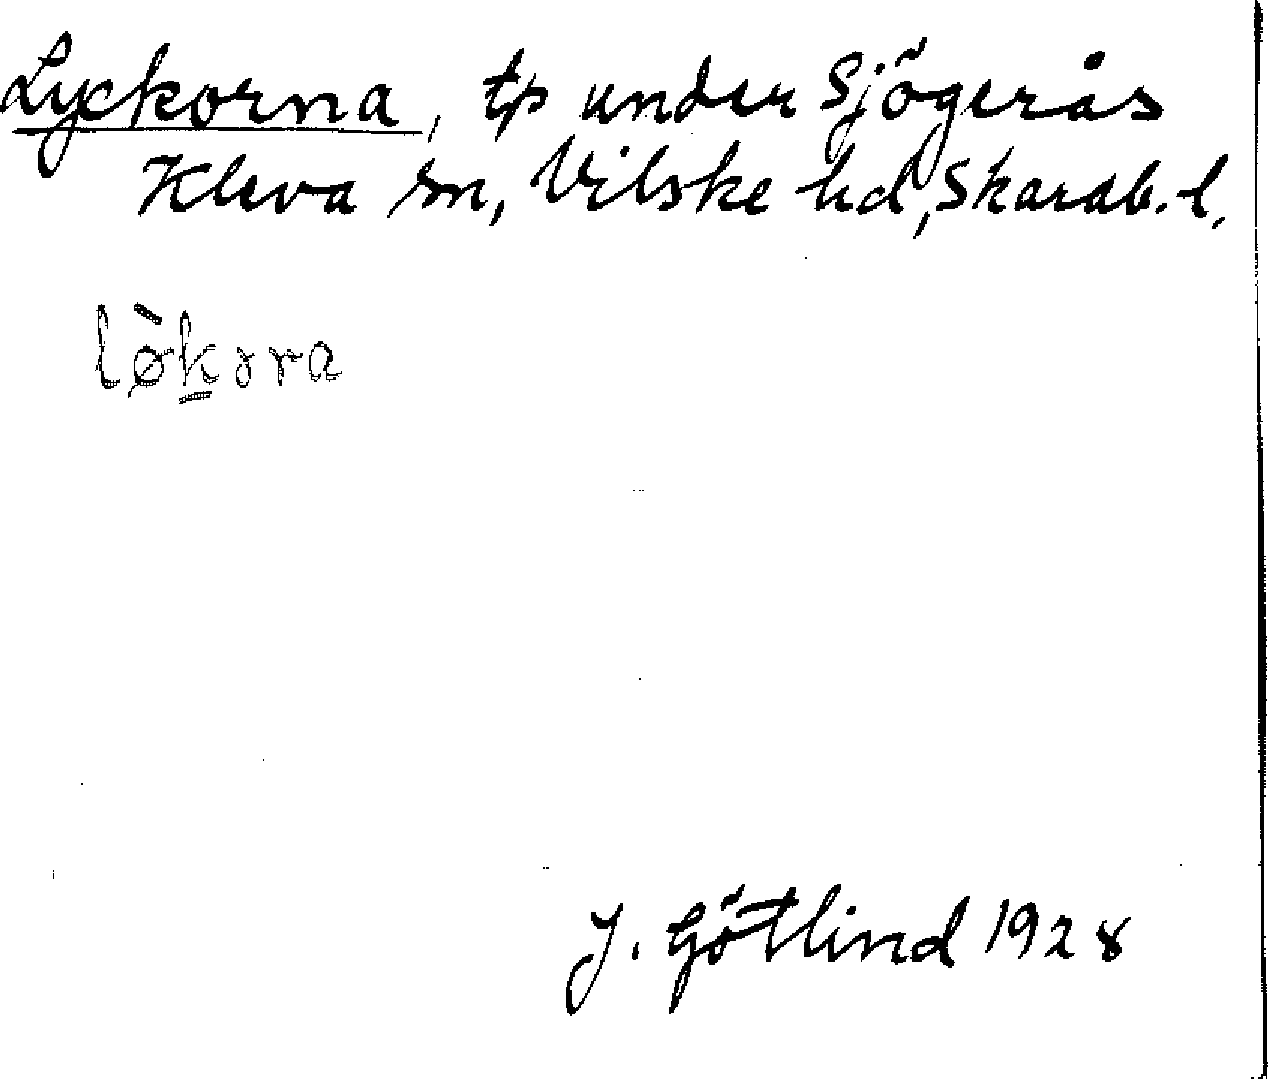 Lyckorna, tp under Sjögerås
Kleva sn, Vilske hd, Skarab. l.
lø̀k̲ɔra
J. Götlind 1928